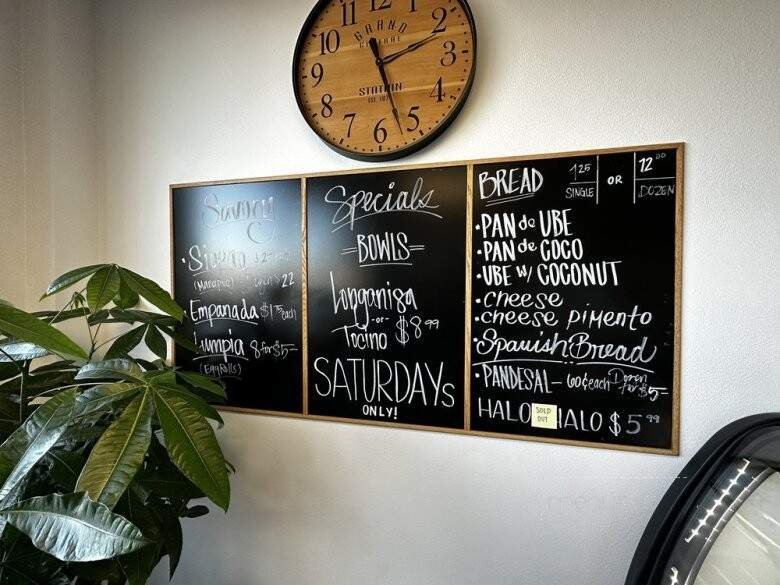 11 12
10 2
9 3
8 4
7 6 5
GRAND
CENTRAL
STATION
Savory
• Siopao
(Manapua) 22
• Empanada $1.75 each
Lumpia 8 for $5-
(Egg Rolls)
Specials
=BOWLS=
Longanisa
-or-
Tocino $8.99
SATURDAYs
ONLY!
BREAD 1.25 SINGLE OR 12.00 DOZEN
• PAN de UBE
• PAN de COCO
• UBE W/ COCONUT
• cheese
• cheese pimento
• Spanish Bread
• PANDESAL - 60¢ each Dozen for $5-
HALO HALO $5.99
SOLD
OUT